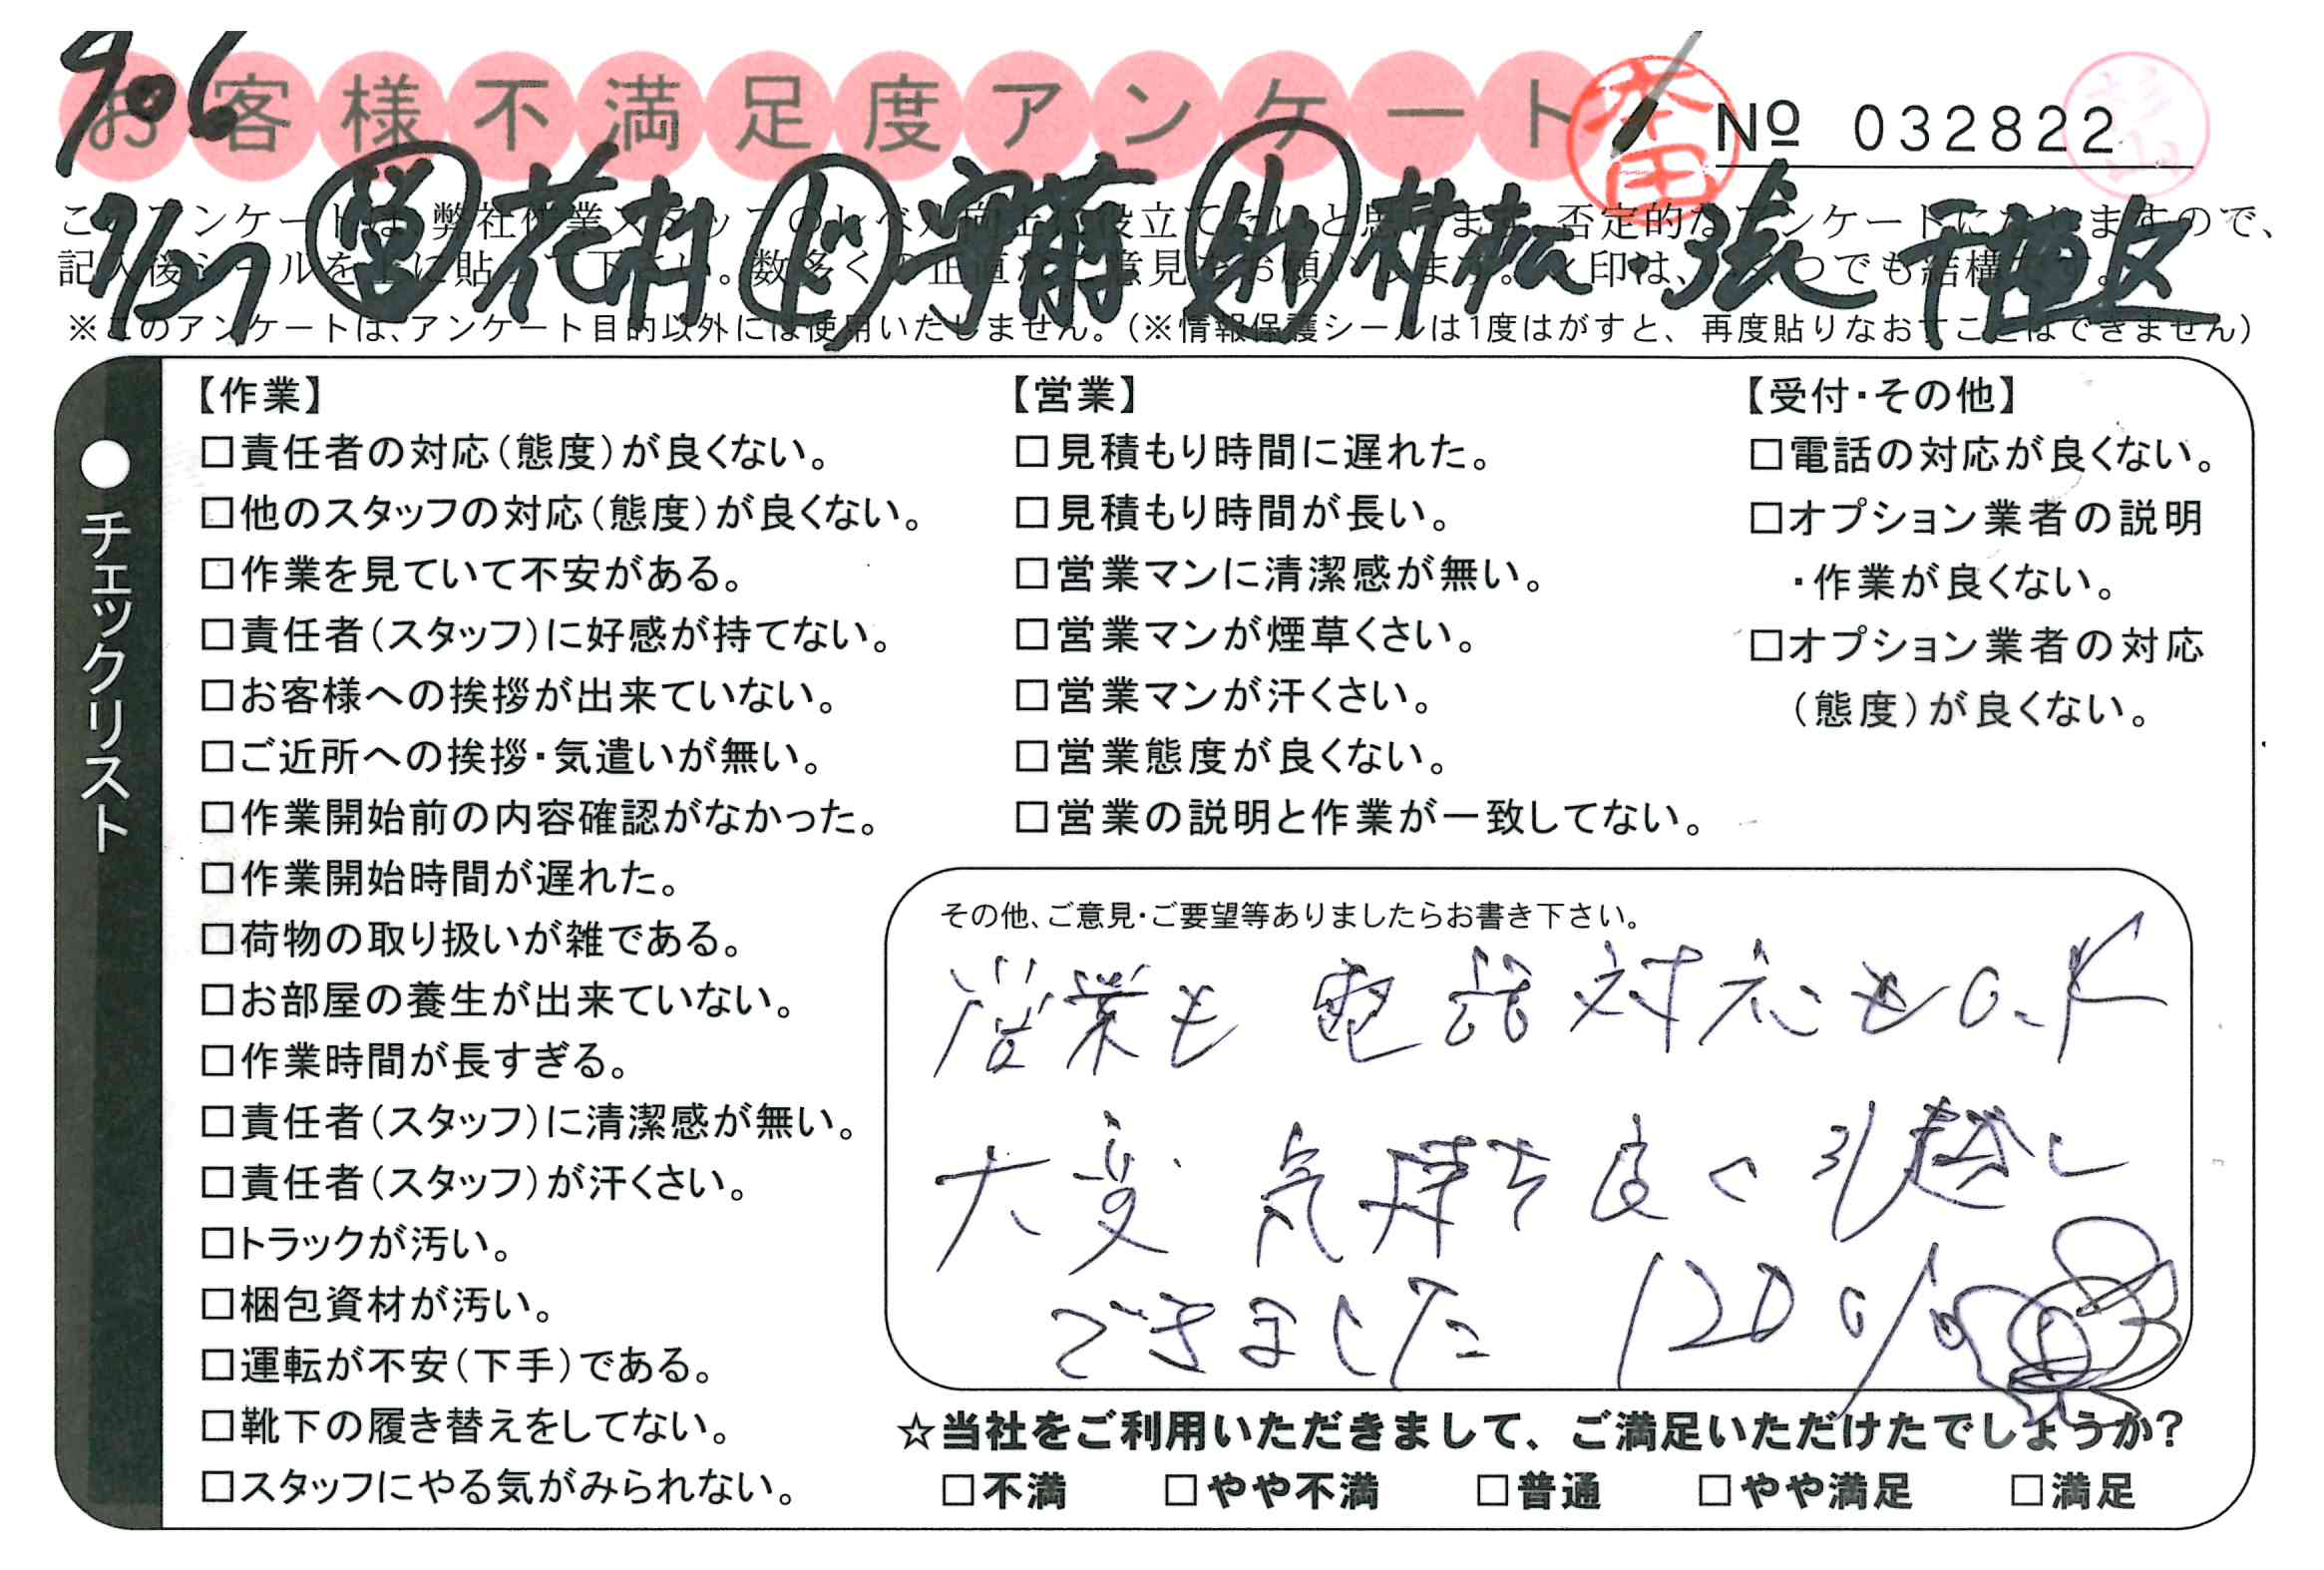 906
お客様不満足度アンケート
本田
№ 032822
杉山
9/27 営 花村 ド 守前 助 村松・張
このアンケートは、弊社作業スタッフのレベル向上に役立てたいと思います。否定的なアンケートになりますので、
記入後シールを上に貼って下さい。数多くの正直なご意見をお願いします。✓印は、いくつでも結構です。
※このアンケートは、アンケート目的以外には使用いたしません。（※情報保護シールは1度はがすと、再度貼りなおすことはできません）
●チェックリスト
【作業】
□責任者の対応（態度）が良くない。
□他のスタッフの対応（態度）が良くない。
□作業を見ていて不安がある。
□責任者（スタッフ）に好感が持てない。
□お客様への挨拶が出来ていない。
□ご近所への挨拶・気遣いが無い。
□作業開始前の内容確認がなかった。
□作業開始時間が遅れた。
□荷物の取り扱いが雑である。
□お部屋の養生が出来ていない。
□作業時間が長すぎる。
□責任者（スタッフ）に清潔感が無い。
□責任者（スタッフ）が汗くさい。
□トラックが汚い。
□梱包資材が汚い。
□運転が不安（下手）である。
□靴下の履き替えをしてない。
□スタッフにやる気がみられない。
【営業】
□見積もり時間に遅れた。
□見積もり時間が長い。
□営業マンに清潔感が無い。
□営業マンが煙草くさい。
□営業マンが汗くさい。
□営業態度が良くない。
□営業の説明と作業が一致してない。
【受付・その他】
□電話の対応が良くない。
□オプション業者の説明
・作業が良くない。
□オプション業者の対応
（態度）が良くない。
その他、ご意見・ご要望等ありましたらお書き下さい。
営業も電話対応もO.K
大変気持ち良く引越し
できました 120%
☆当社をご利用いただきまして、ご満足いただけたでしょうか?
□不満 □やや不満 □普通 □やや満足 □満足